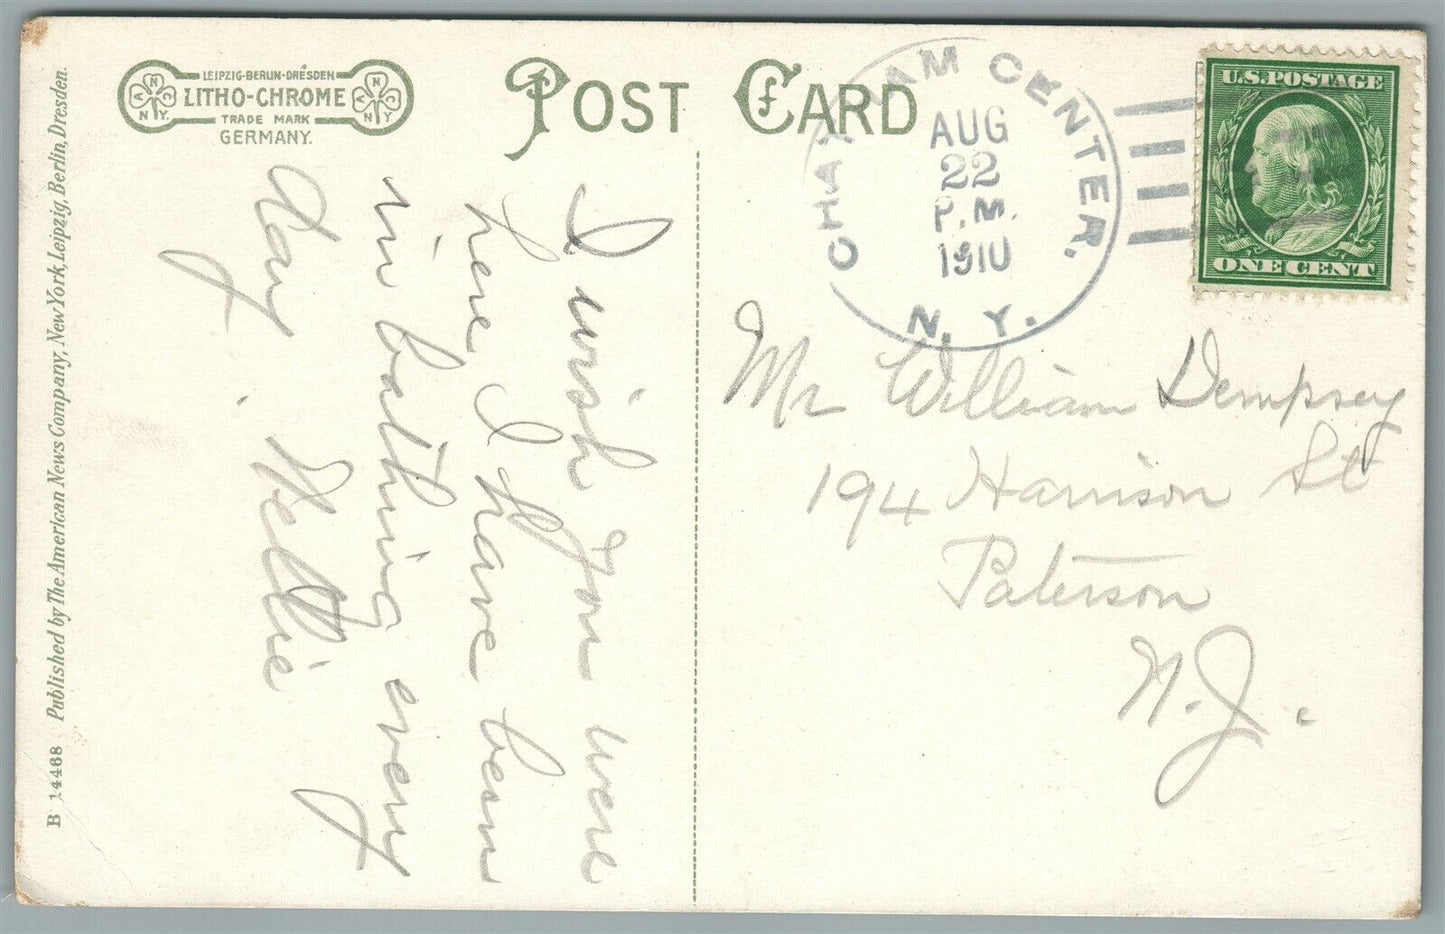 LEIPZIG-BERLIN-DRESDEN
LITHO-CHROME
TRADE MARK
GERMANY.
N
A C
N.Y.
N
A C
N.Y.
POST CARD
CHATHAM CENTER,
AUG
22
P.M.
1910
N. Y.
U.S. POSTAGE
ONE CENT
I wish you were
here I have been
in bathing every
day.
Nellie
Mr William Dempsey
194 Harrison St
Paterson
N.J.
B 14468 Published by The American News Company, New York, Leipzig, Berlin, Dresden.